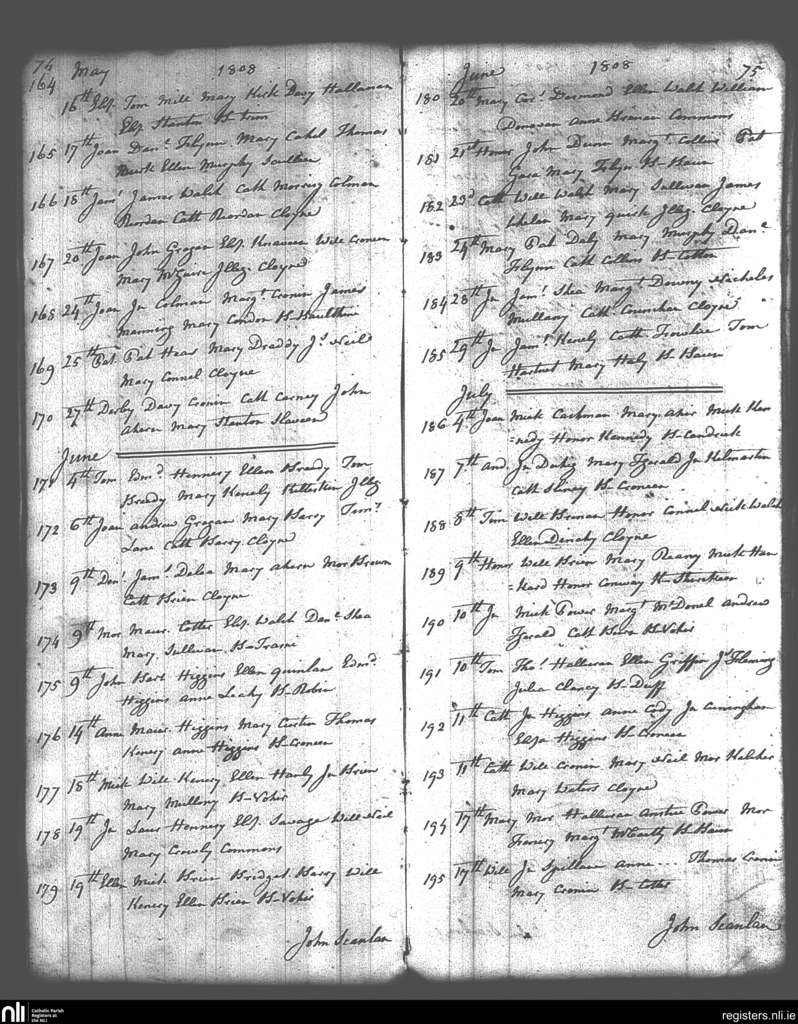 74 May 1808
164 16th Elis. Tom Mile Mary Hick Davy Hallanan
Elis. Stanton B
165 17th Joan Dan.l Flynn Mary Cahel Thomas
Ellen Murphy
166 18th Jam.s James Walsh Cath Morrissy Colman
Reordan Cath Reordan Cloyne
167 20th Joan John Grogan Elis. Will Croneen
Mary McGuire Illeg. Cloyne
168 24th Joan Jn Colman Marg.t Cronin James
Manning Mary Condon B
169 25th Pat Pat Hear Mary Draddy J.s Neil
Mary Connel Cloyne
170 27th Derby Davy Cronin Cath Carney John
Ahern Mary Stanton
June
171 4th Tom Edm.d Hennery Ellen Bready Tom
Bready Mary Kenely Illeg
172 6th Joan Andrew Grogan Mary Barry Tim.y
Lane Cath Barry Cloyne
173 9th Den.s Jam.s Delea Mary Ahern Mor Brown
Cath Brien Cloyne
174 9th Mor Maur. Cotter Elis. Walsh Dan.l Shea
Mary Sullivan B-Traseni
175 9th John Bart Higgins Ellen Quinlan Edm.d
Higgins Anne Leahy B-Robin
176 14th Anne Maur. Higgins Mary Curtin Thomas
Kenery Anne Higgins B-Croneen
177 18th Mick Will Kenery Ellen Hanly Jn Brien
Mary Mullony B-Vohir
178 19th Jn Laur Hennery Elis. Savage Will Neil
Mary Crowly Commons
179 19th Ellen Mick Brien Bridget Barry Will
Kenery Ellen Brien B-Vohir
John Scanlan
June 1808 75
180 20th Mary Cor.s Desmond Ellen Walsh William
Donovan Anne Brenan Commons
181 21st Honor John Dunn Marg.t Collins Pat
Mary Flyn B-
182 23d Cath Will Walsh Mary Sullivan James
Whelan Mary Quirk Illeg. Cloyne
183 24th Mary Pat Daly Mary Murphy Dan.l
Flynn Cath Collins B-Cotter
184 28th Jn Jam.s Shea Marg.t Downy Nicholas
Mullany Cath Cloyne
185 29th Jn Jam.s Kenely Cath Tom
Hartnet Mary Haly B
July
186 4th Joan Mick Cashman Mary Ahir Mick Ken
=nedy Honor Kennedy B-Londrick
187 7th And. Jn Duhig Mary Fgerald Jn Kelmartin
Cath B-Croneen
188 8th Tim Will Brenan Honor Connel Nick Walsh
Ellen Denehy Cloyne
189 9th Honor Will Brien Mary Reany Mick Han
=kard Honor Conway B-
190 10th Jn Mick Power Marg.t McDonel Andrew
Fgerald Cath B-Vohir
191 10th Tom Tho.s Halleran Ellen Griffin J.s Fleming
Julia Clancy B-Duff
192 11th Cath Jn Higgins Anne Cody Jn Cuninghan
Eliza Higgins B-Croneen
193 11th Cath Will Cronin Mary Neil Mor Kelcher
Mary Waters Cloyne
194 17th Mary Mor Halleran Anstice Power Mor
Marg.t McCarthy B
195 17th Will Jn Spillan Anne .... Thomas Cronin
Mary Cronin B-Cotter
John Scanlan
nli Catholic Parish
Registers at
the NLI
registers.nli.ie